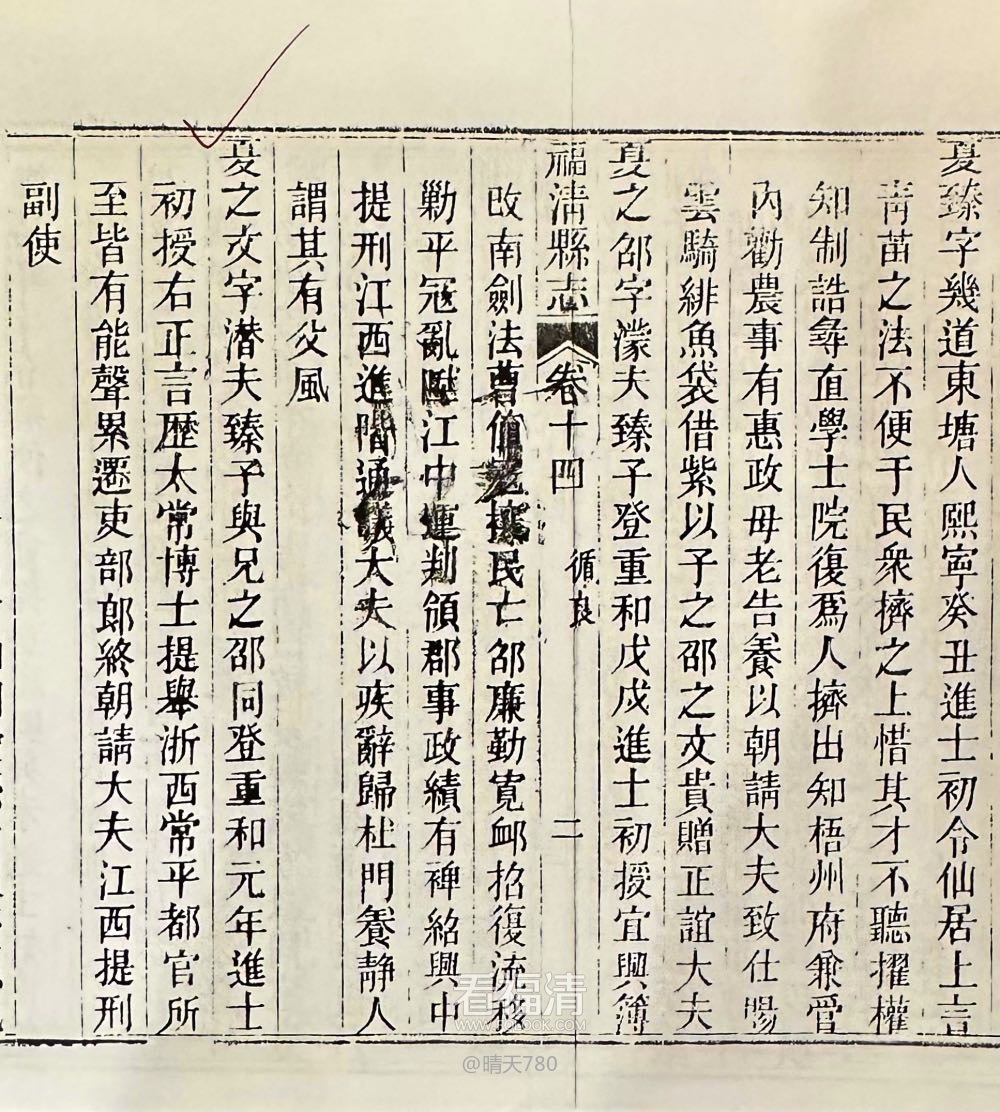 夏臻字幾道東塘人熙寧癸丑進士初令仙居上言
青苗之法不便于民衆擠之上惜其才不聽擢權
知制誥尋直學士院復爲人擠出知梧州府兼管
內勸農事有惠政母老告養以朝請大夫致仕賜
雲騎緋魚袋借紫以子之邵之文貴贈正誼大夫
夏之邵字濛夫臻子登重和戊戌進士初授宜興簿
福清縣志 卷十四 循良 二
改南劍法曹 民亡邵廉勤寬卹招復流移
勦平冦亂 江中運判領郡事政績有裨紹興中
提刑江西進階通議大夫以疾辭歸杜門養静人
謂其有父風
夏之文字潜夫臻子與兄之邵同登重和元年進士
初授右正言歴太常博士提舉浙西常平都官所
至皆有能聲累遷吏部郎終朝請大夫江西提刑
副使
看福清
WWW.FQLOOK.COM
@晴天780